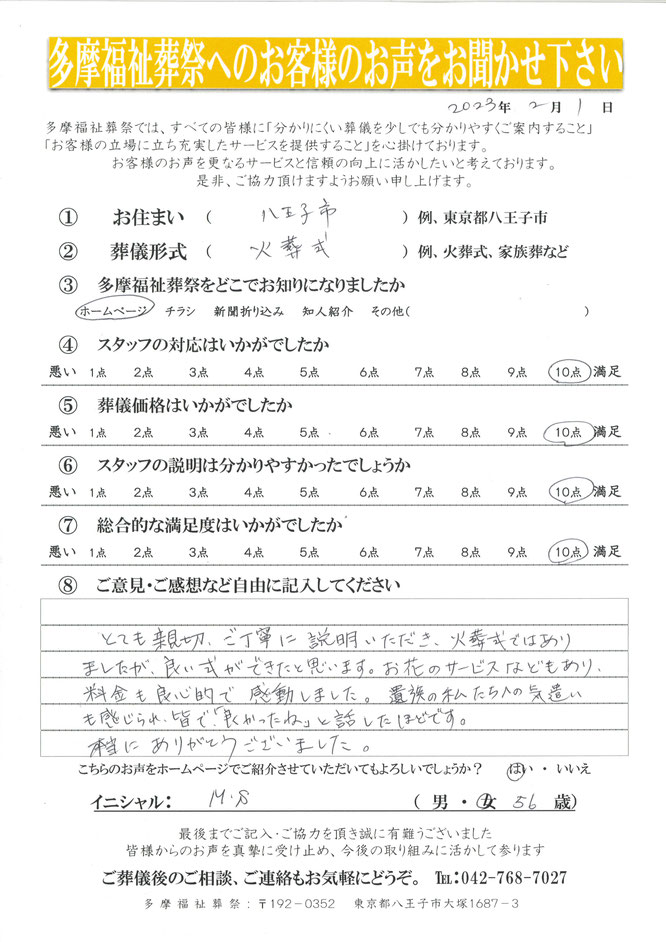 多摩福祉葬祭へのお客様のお声をお聞かせ下さい
2023年 2月 1日
多摩福祉葬祭では、すべての皆様に「分かりにくい葬儀を少しでも分かりやすくご案内すること」
「お客様の立場に立ち充実したサービスを提供すること」を心掛けております。
お客様のお声を更なるサービスと信頼の向上に活かしたいと考えております。
是非、ご協力頂けますようお願い申し上げます。
① お住まい （ 八王子市 ）例、東京都八王子市
② 葬儀形式 （ 火葬式 ）例、火葬式、家族葬など
③ 多摩福祉葬祭をどこでお知りになりましたか
ホームページ チラシ 新聞折り込み 知人紹介 その他( )
④ スタッフの対応はいかがでしたか
悪い 1点 2点 3点 4点 5点 6点 7点 8点 9点 10点 満足
⑤ 葬儀価格はいかがでしたか
悪い 1点 2点 3点 4点 5点 6点 7点 8点 9点 10点 満足
⑥ スタッフの説明は分かりやすかったでしょうか
悪い 1点 2点 3点 4点 5点 6点 7点 8点 9点 10点 満足
⑦ 総合的な満足度はいかがでしたか
悪い 1点 2点 3点 4点 5点 6点 7点 8点 9点 10点 満足
⑧ ご意見・ご感想など自由に記入してください
とても親切、ご丁寧に説明いただき、火葬式ではあり
ましたが、良い式ができたと思います。お花のサービスなどもあり、
料金も良心的で感動しました。遺族の私たちへの気遣い
も感じられ、皆で「良かったね」と話したほどです。
本当にありがとうございました。
こちらのお声をホームページでご紹介させていただいてもよろしいでしょうか？ はい ・ いいえ
イニシャル： M.S （ 男 ・ 女 56 歳）
最後までご記入・ご協力を頂き誠に有難うございました
皆様からのお声を真摯に受け止め、今後の取り組みに活かして参ります
ご葬儀後のご相談、ご連絡もお気軽にどうぞ。 ℡：042-768-7027
多摩福祉葬祭：〒192-0352 東京都八王子市大塚1687-3